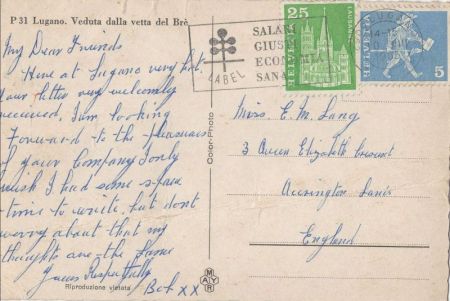 P 31 Lugano. Veduta dalla vetta del Brè
My Dear Friends
Here at Lugano very hot.
Your letter very welcomly
received, I am looking
Forward to the pleasures
of your Company I only
wish I had some spare
time to write, but dont
worry about that my
thought are the same
Yours Respectfully
Bob xx
Riproduzione vietata
Color-Photo
MAYR
LABEL
SALARI
GIUS
ECON
SANA
25
HELVETIA
LAUSANNE
HELVETIA
5
Miss. E. M. Lang
3 Queen Elizabeth Crescent
Accrington Lancs
England